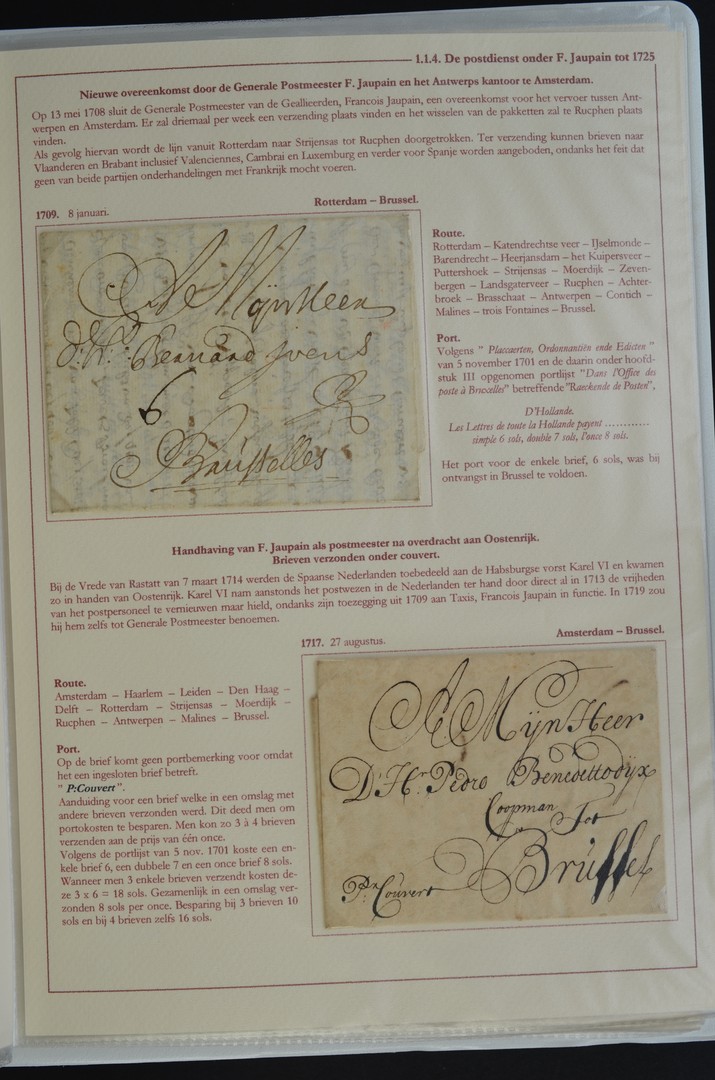 1.1.4. De postdienst onder F. Jaupain tot 1725
Nieuwe overeenkomst door de Generale Postmeester F. Jaupain en het Antwerps kantoor te Amsterdam.
Op 13 mei 1708 sluit de Generale Postmeester van de Geallieerden, Francois Jaupain, een overeenkomst voor het vervoer tussen Ant-
werpen en Amsterdam. Er zal driemaal per week een verzending plaats vinden en het wisselen van de pakketten zal te Rucphen plaats
vinden.
Als gevolg hiervan wordt de lijn vanuit Rotterdam naar Strijensas tot Rucphen doorgetrokken. Ter verzending kunnen brieven naar
Vlaanderen en Brabant inclusief Valenciennes, Cambrai en Luxemburg en verder voor Spanje worden aangeboden, ondanks het feit dat
geen van beide partijen onderhandelingen met Frankrijk mocht voeren.
Rotterdam – Brussel.
1709. 8 januari.
A Mijnheer
d'Hr. Bernard Jvens
6
Brusselles
Route.
Rotterdam – Katendrechtse veer – IJselmonde –
Barendrecht – Heerjansdam – het Kuipersveer –
Puttershoek – Strijensas – Moerdijk – Zeven-
bergen – Landsgaterveer – Rucphen – Achter-
broek – Brasschaat – Antwerpen – Contich –
Malines – trois Fontaines – Brussel.
Port.
Volgens " Placcaerten, Ordonnantiën ende Edicten "
van 5 november 1701 en de daarin onder hoofd-
stuk III opgenomen portlijst "Dans l'Office des
poste à Bruxelles" betreffende "Raeckende de Posten",
D'Hollande.
Les Lettres de toute la Hollande payent …………
simple 6 sols, double 7 sols, l'once 8 sols.
Het port voor de enkele brief, 6 sols, was bij
ontvangst in Brussel te voldoen.
Handhaving van F. Jaupain als postmeester na overdracht aan Oostenrijk.
Brieven verzonden onder couvert.
Bij de Vrede van Rastatt van 7 maart 1714 werden de Spaanse Nederlanden toebedeeld aan de Habsburgse vorst Karel VI en kwamen
zo in handen van Oostenrijk. Karel VI nam aanstonds het postwezen in de Nederlanden ter hand door direct al in 1713 de vrijheden
van het postpersoneel te vernieuwen maar hield, ondanks zijn toezegging uit 1709 aan Taxis, Francois Jaupain in functie. In 1719 zou
hij hem zelfs tot Generale Postmeester benoemen.
Amsterdam – Brussel.
1717. 27 augustus.
Route.
Amsterdam – Haarlem – Leiden – Den Haag –
Delft – Rotterdam – Strijensas – Moerdijk –
Rucphen – Antwerpen – Malines – Brussel.
Port.
Op de brief komt geen portbemerking voor omdat
het een ingesloten brief betreft.
" P:Couvert".
Aanduiding voor een brief welke in een omslag met
andere brieven verzonden werd. Dit deed men om
portokosten te besparen. Men kon zo 3 à 4 brieven
verzenden aan de prijs van één once.
Volgens de portlijst van 5 nov. 1701 koste een en-
kele brief 6, een dubbele 7 en een once brief 8 sols.
Wanneer men 3 enkele brieven verzendt kosten de-
ze 3 x 6 = 18 sols. Gezamenlijk in een omslag ver-
zonden 8 sols per once. Besparing bij 3 brieven 10
sols en bij 4 brieven zelfs 16 sols.
A Mijn Heer
D'Hr Pedro Benedettodijx
Coopman Tot
Brussel
Pr. Couvert